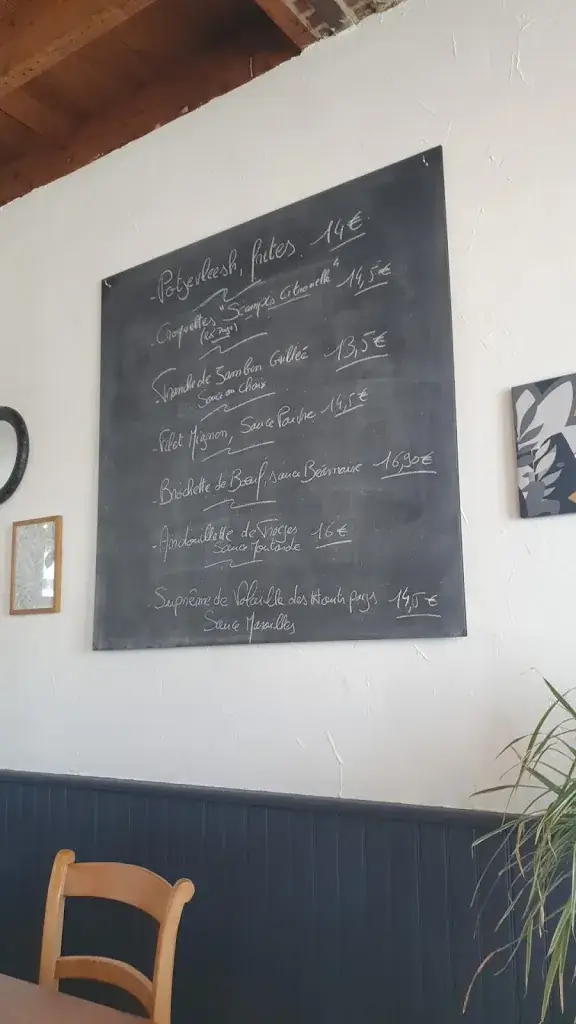 - Potjevleesh, frites. 14€
- Croquettes "Scampis Citronelle" 14,5€
- Tranche de Jambon Grillée 13,5€
Sauce au choix
- Filet Mignon, Sauce Poivre 14,5€
- Brochette de Bœuf, sauce Béarnaise 16,90€
- Andouillette de Troyes 16€
Sauce Moutarde
- Suprême de Volaille des Hauts pays 14,5€
Sauce Maroilles